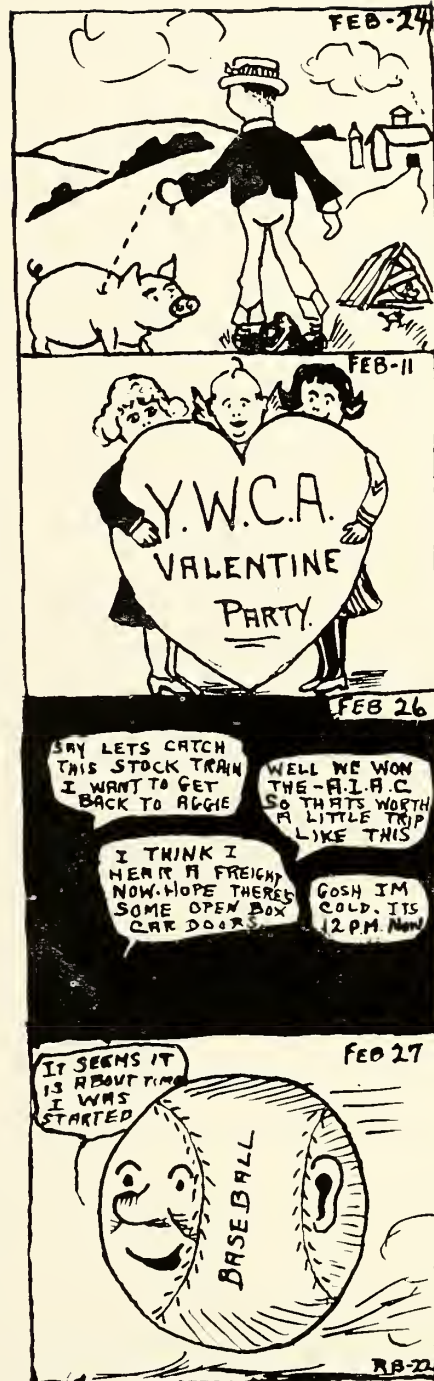 FEB-24
FEB-11
Y.W.C.A.
VALENTINE
PARTY.
FEB 26
SAY LETS CATCH
THIS STOCK TRAIN
I WANT TO GET
BACK TO AGGIE
WELL WE WON
THE-A.I.A.C
SO THATS WORTH
A LITTLE TRIP
LIKE THIS
I THINK I
HEAR A FREIGHT
NOW. HOPE THERES
SOME OPEN BOX
CAR DOORS
GOSH IM
COLD. ITS
12 P.M. NOW
FEB 27
IT SEEMS IT
IS ABOUT TIME
I WAS
STARTED
BASEBALL
RB-22